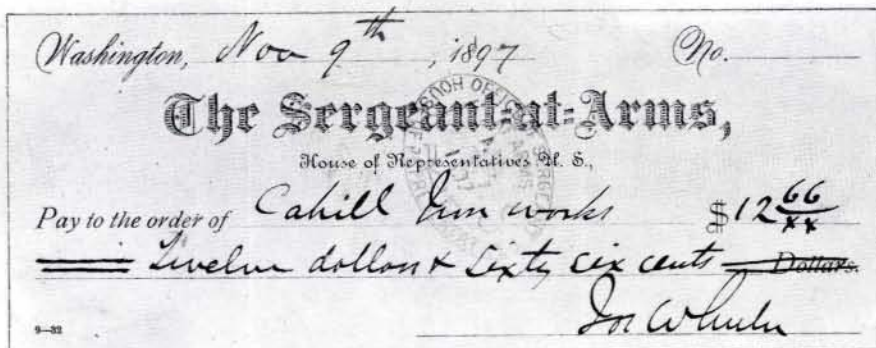 Washington, Nov 9th, 1897 No.
The Sergeant-at-Arms,
House of Representatives U. S.,
Pay to the order of Cahill Iron works $12 66/xx
Twelve dollars & Sixty six cents Dollars.
Jos Wheeler
9—32